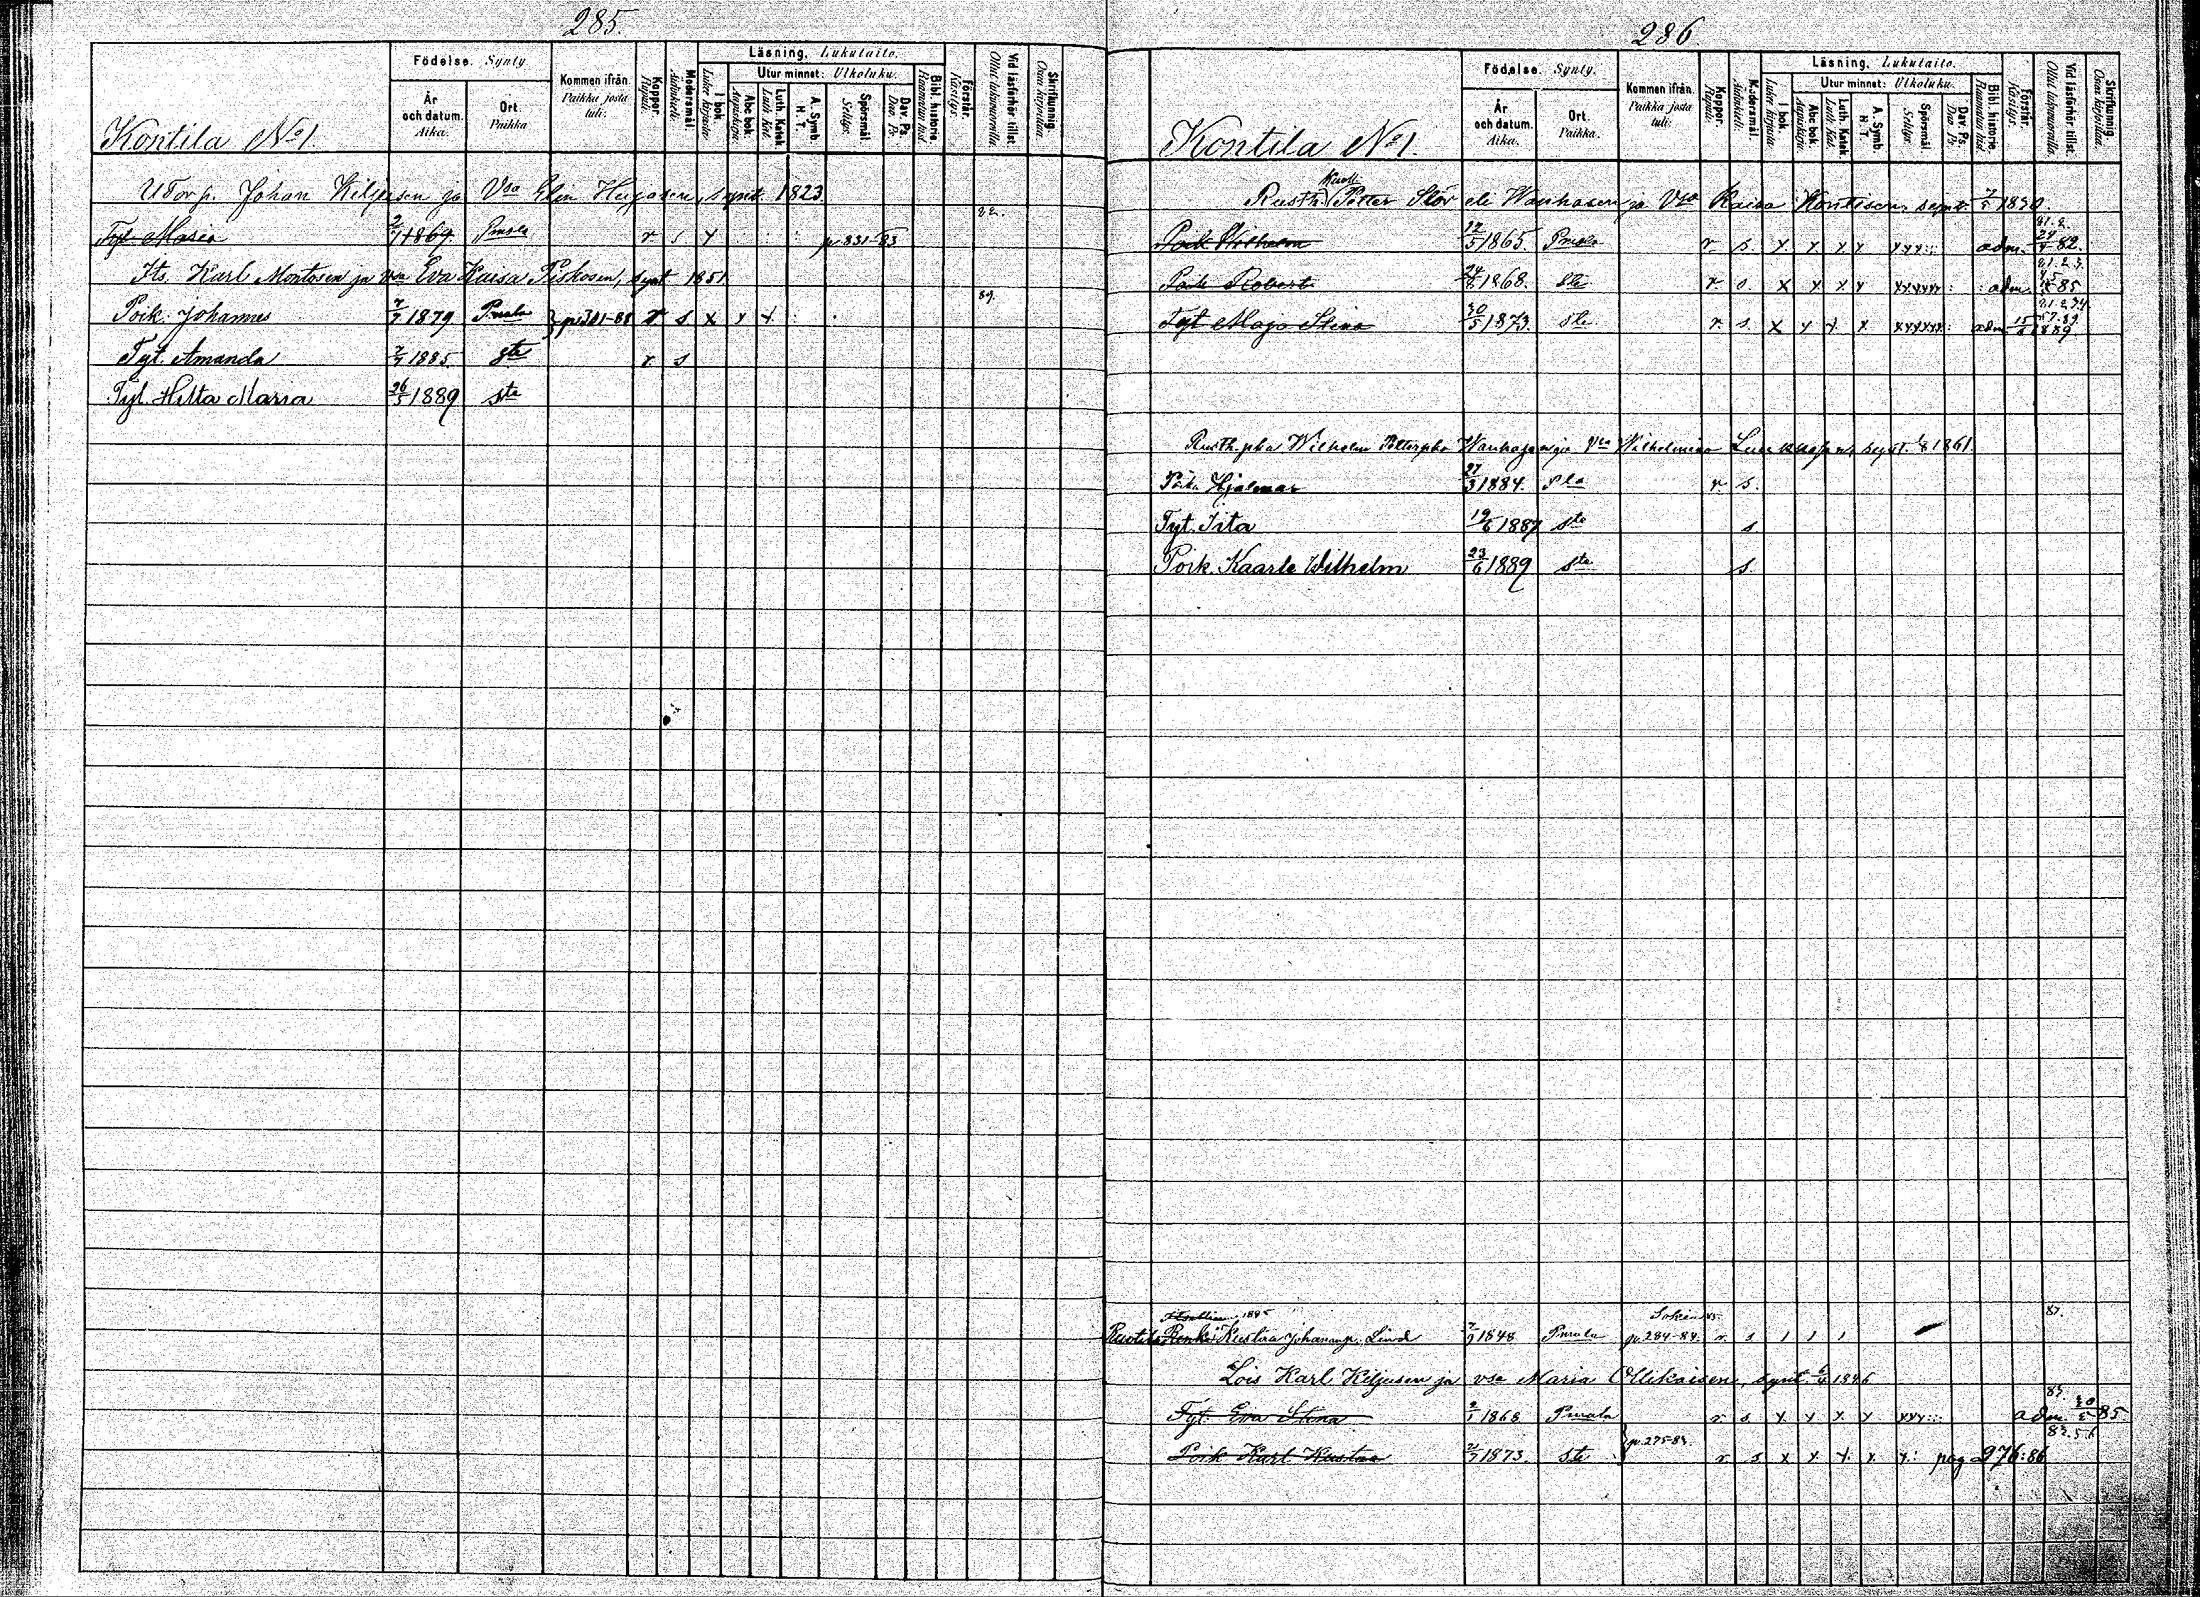 285.
Kontila No 1.
Födelse. Synty.
År och datum. Aika.
Ort. Paikka
Kommen ifrån. Paikka josta tuli:
Koppor. Rupuli.
Modersmål. Äidinkieli.
Läsning. Lukutaito.
I bok. Lukee kirjasta.
Utur minnet: Ulkoluku.
Abc bok. Aapiskirja.
Luth. Katek. Luth. Kat.
A. Symb. H. T.
Spörsmål. Selitys.
Dav. Ps. Dav. Ps.
Bibl. historie. Raamatun hist.
Förstår. Käsitys.
Vid läsförhör tillst. Ollut lukuvuoroilla.
Skrifkunnig. Osaa kirjoittaa.
Johan Kiljusen ja Vsa Elin synt. 1823
Tyt. Maria 2/1 1867. Pmala r s x p. 831-83 82.
Its. Karl Montosen ja vsa Eva Kaisa Piskosen, synt 1851.
Poik. Johannes 7/7 1879 Pmala p. 301-88 r s x x x 89.
Tyt. Amanda 7/7 1885. sta r. s
Tyt. Hilta Maria 26/5 1889 sta
286.
Kontila No 1.
Födelse. Synty.
År och datum. Aika.
Ort. Paikka.
Kommen ifrån. Paikka josta tuli:
Koppor. Rupuli.
Modersmål. Äidinkieli.
Läsning. Lukutaito.
I bok. Lukee kirjasta.
Utur minnet: Ulkoluku.
Abc bok. Aapiskirja.
Luth. Katek. Luth. Kat.
A. Symb. H. T.
Spörsmål. Selitys.
Dav. Ps. Dav. Ps.
Bibl. historie. Raamatun hist.
Förstår. Käsitys.
Vid läsförhör tillst. Ollut lukuvuoroilla.
Skrifkunnig. Osaa kirjoittaa.
Rusth. Petter Stör eli Wanhasen ja Vsa Kaisa Kontisen synt. 7/5 1830.
Poik Wilhelm 12/5 1865. Pmala r s. x x x x xxx::: adm. 24/4 82. 81. 2.
Poik Robert 24/6 1868. sta r s. x x x x xxxxxx: : adm. 85 81. 2. 3.
Tyt Maja Stina 30/5 1873. sta r. s. x x x x xxxxxx: adm 15/6 1889
Rusth. pka Wilhelm Petterpka Wanhasen ja Vsa Wilhelmina Luukkosen, synt. 1861.
Poik. Hjalmar 27/3 1884. sta r. s.
Tyt. Iita 19/6 1887 sta s
Poik. Kaarle Wilhelm 23/6 1889 sta s.
1895
Ruotila Renki Kustaa Johaninp. Lind 7/9 1848 Pmala p. 284-84. r s 1 1 1 87.
Lois Karl Kiljusen ja vsa Maria Ollikaisen, synt. 6/4 1846
Tyt. Eva Stina 2/1 1868 Pmala r s. x x x. x xxx::: adm. 30/5 85 83.
Poik Karl Kustaa 21/7 1873. sta p. 275-83. r s x x x x x: pag 976:86 83. 5 6